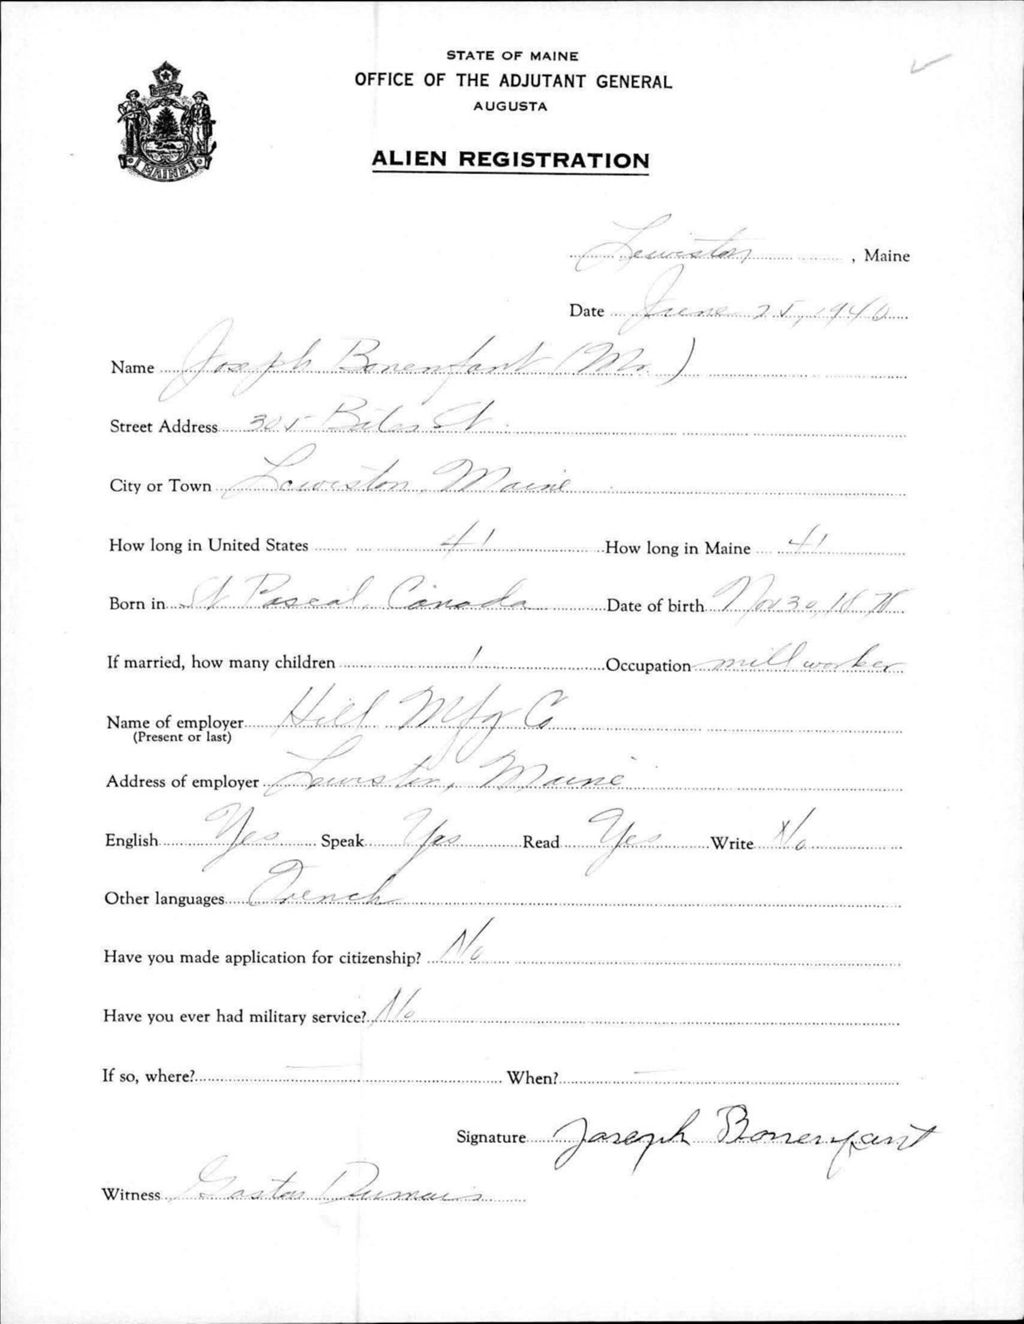 STATE OF MAINE
OFFICE OF THE ADJUTANT GENERAL
AUGUSTA
MAINE
ALIEN REGISTRATION
Lewiston, Maine
Date June 25, 1940
Name Joseph Bonenfant (Mr.)
Street Address 305 Bates St.
City or Town Lewiston, Maine
How long in United States 41 How long in Maine 41
Born in St Pascal, Canada Date of birth Nov 30, 1878
If married, how many children 1 Occupation mill worker
Name of employer Hill Mfg Co
(Present or last)
Address of employer Lewiston, Maine
English Yes Speak Yes Read Yes Write No
Other languages French
Have you made application for citizenship? No
Have you ever had military service? No
If so, where? — When? —
Signature Joseph Bonenfant
Witness Dumais